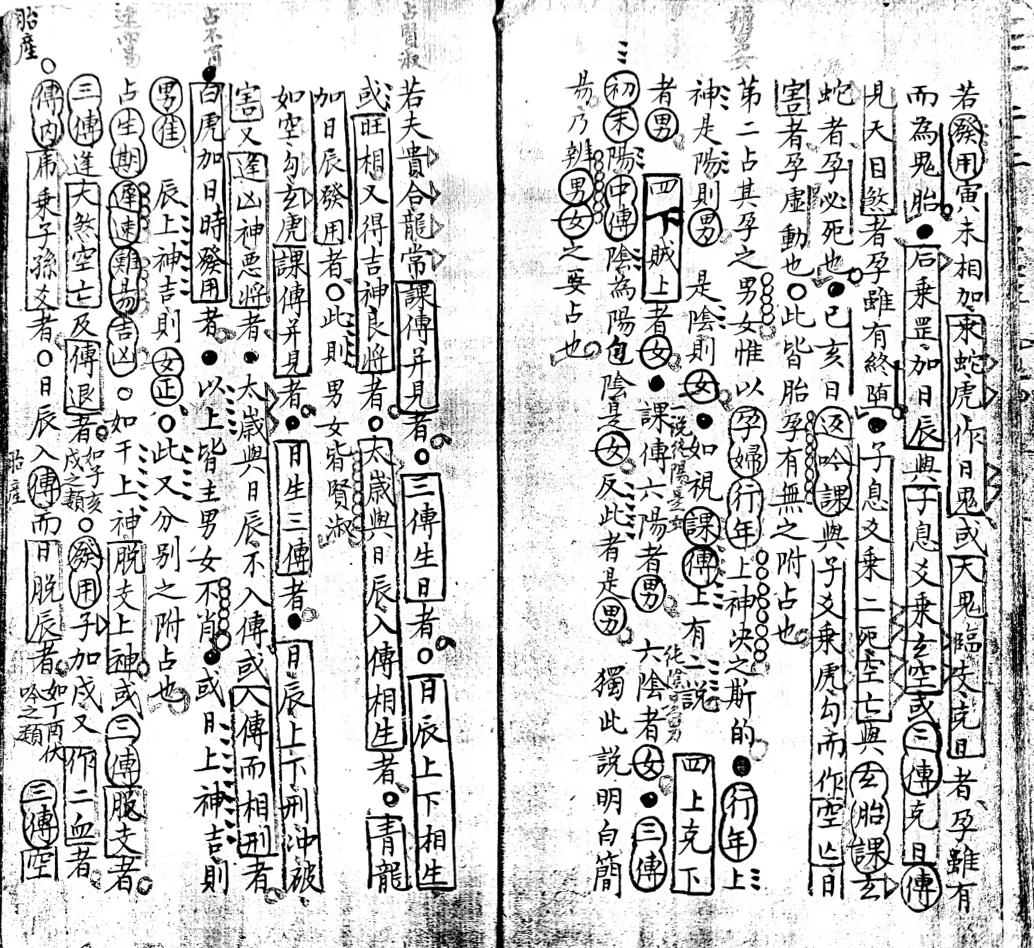 若發用寅未相加乘蛇虎作日鬼或天鬼臨支克日者孕雖有
而為鬼胎后乘罡加日辰與子息爻乘玄空或三傳克日傳
見天目煞者孕雖有終墮子息爻乘二死空亡與玄胎課玄
蛇者孕必死也巳亥日返吟課與子爻乘虎勾而作空亡日
害者孕虛動也此皆胎孕有無之附占也
第二占其孕之男女惟以孕婦行年上神决之斯的行年上
神是陽則男 是陰則女如視課傳上有二說四上克下
者男四下賊上者女課傳六陽者男 六陰者女三傳
初末陽中傳陰為陽包陰是女反此者是男 獨此說明白簡
易乃辨男女之要占也
占賢淑
若夫貴合龍常課傳并見者三傳生日者日辰上下相生
或旺相又得吉神良將者太歲與日辰入傳相生者青龍
加日辰發用者此則男女皆賢淑
如空勾玄虎課傳并見者日生三傳者日辰上下刑冲被
害又逢凶神悪將者太歲與日辰不入傳或入傳而相刑者
占不肖
白虎加日時發用者以上皆主男女不肖或日上神吉則
男佳 辰上神吉則女正此又分别之附占也
占生期遲速難易吉凶如干上神脫支上神或三傳脫支者
三傳逢大煞空亡及傳退者如子亥戌之類發用子加戌又作二血者
胎產
傳内虎乘子孫爻者日辰入傳而日脫辰者如丁酉伏吟之類 三傳空
胎產